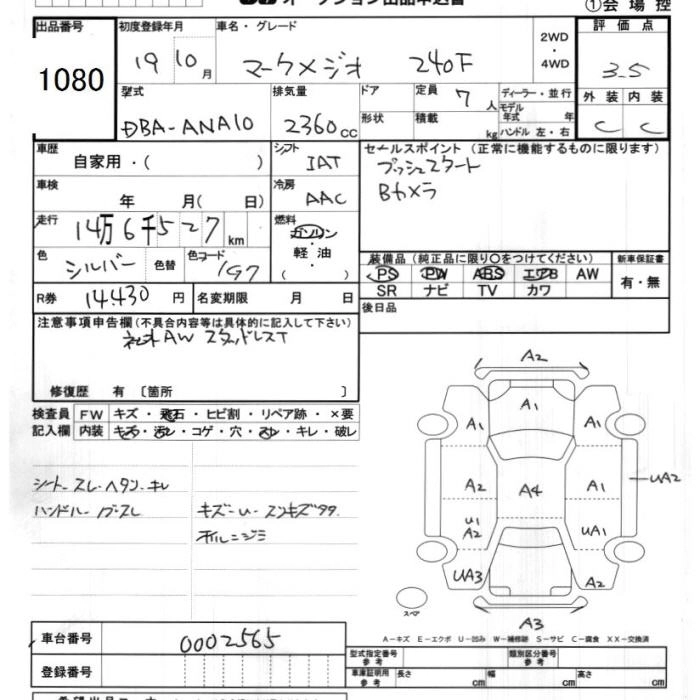 オークション出品申込書
①会場控
出品番号
1080
初度登録年月
19 10月
車名・グレード
マークXジオ 240F
2WD
・
4WD
評価点
3.5
外装 内装
C C
型式
DBA-ANA10
排気量
2360cc
ドア
形状
定員 7人
積載 kg
ディーラー・並行
モデル年式 年
ハンドル 左・右
車歴
自家用・( )
シフト
IAT
セールスポイント (正常に機能するものに限ります)
プッシュスタート
Bカメラ
車検
年 月( 日)
冷房
AAC
走行
14万6千527km
燃料
ガソリン
軽油
・
( )
色
シルバー
色替
色コード
1G7
装備品 (純正品に限り○をつけてください)
PS PW ABS エアB AW
SR ナビ TV カワ
新車保証書
有・無
R券 14,430円
名変期限 月 日
後日品
注意事項申告欄 (不具合内容等は具体的に記入して下さい)
社外AW スタッドレスT
修復歴 有 〔箇所 〕
検査員
記入欄
FW キズ・飛石・ヒビ割・リペア跡・×要
内装 キズ・汚レ・コゲ・穴・スレ・キレ・破レ
シートスレ・ヘタリ・キレ
ハンドルスレ
キズ・U・スリキズ
A2
A1
A1
A1
A2
A4
A1
UA2
U1
A2
UA1
UA3
A2
スペア
A3
A-キズ E-エクボ U-凹み W-補修跡 S-サビ C-腐食 XX-交換済
車台番号
0002565
登録番号
型式指定番号
参考
類別区分番号
参考
車庫証明用
参考
長さ cm 幅 cm 高さ cm